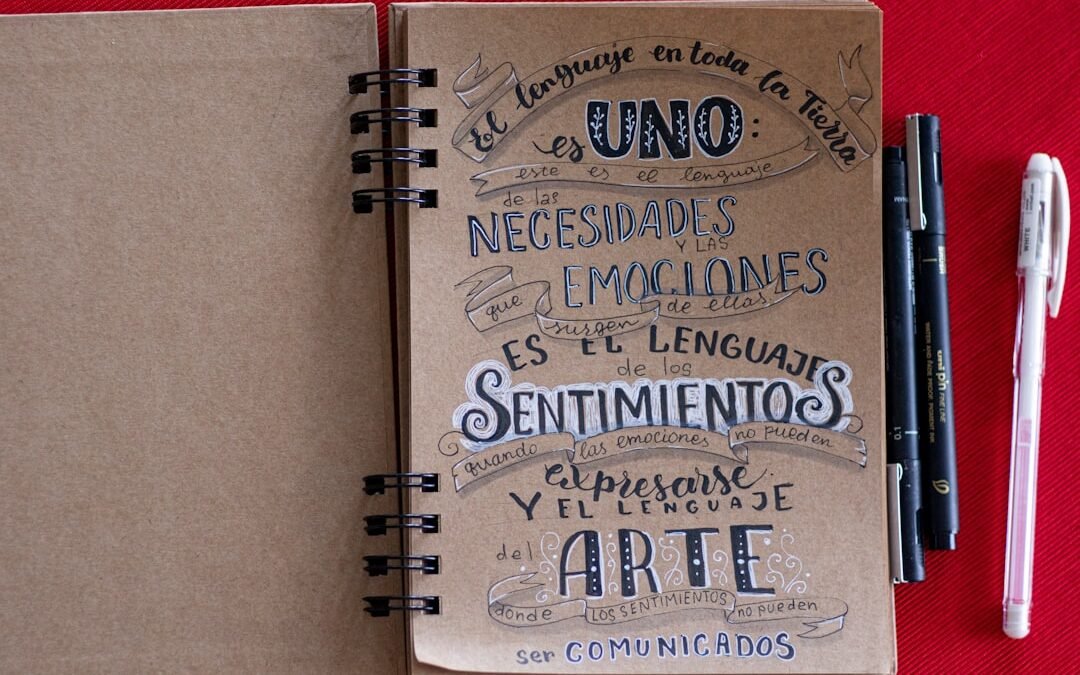 El lenguaje en toda la Tierra
es UNO:
este es el lenguaje
de las
NECESIDADES
Y LAS
EMOCIONES
que surgen de ellas.
ES EL LENGUAJE
de los
SENTIMIENTOS
quando las emociones no pueden
expresarse.
Y EL LENGUAJE
del ARTE
donde LOS SENTIMIENTOS no pueden
ser COMUNICADOS
uni pin FINE LINE
WATER AND FADE PROOF, PIGMENT INK
BRUSH
0.1
WHITE